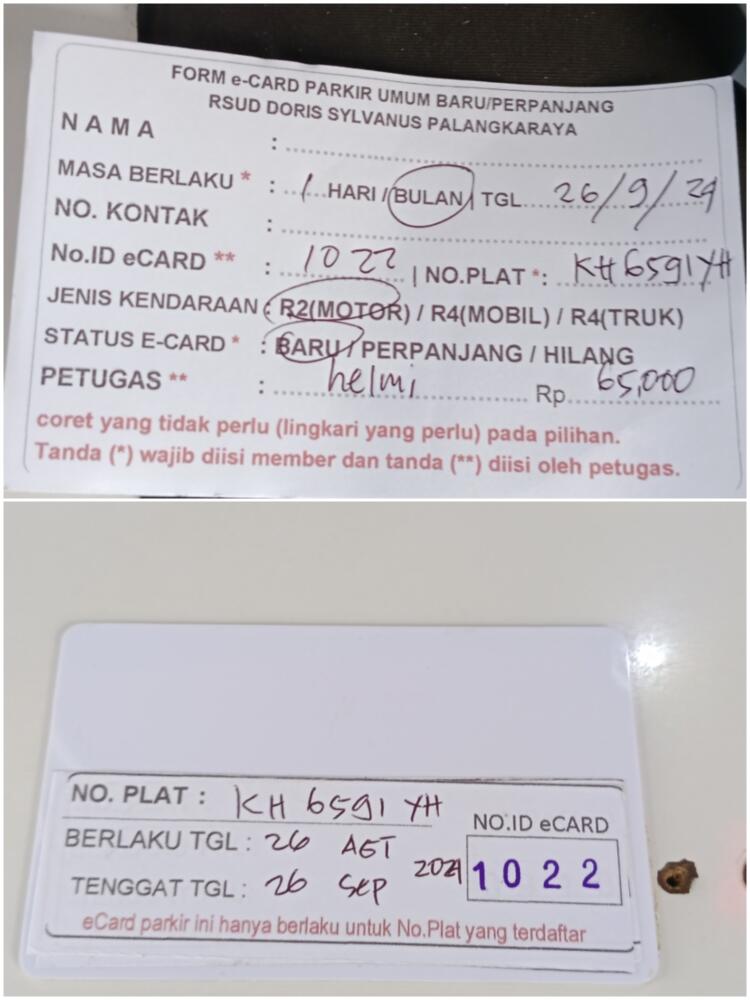 FORM e-CARD PARKIR UMUM BARU/PERPANJANG
RSUD DORIS SYLVANUS PALANGKARAYA
NAMA :
MASA BERLAKU * : 1 HARI / BULAN | TGL 26/9/24
NO. KONTAK :
No.ID eCARD ** : 1022 | NO.PLAT *: KH 6591 YH
JENIS KENDARAAN : R2(MOTOR) / R4(MOBIL) / R4(TRUK)
STATUS E-CARD * : BARU / PERPANJANG / HILANG
PETUGAS ** : helmi Rp. 65,000
coret yang tidak perlu (lingkari yang perlu) pada pilihan.
Tanda (*) wajib diisi member dan tanda (**) diisi oleh petugas.
NO. PLAT : KH 6591 YH
NO.ID eCARD
BERLAKU TGL : 26 AGT
2024 1022
TENGGAT TGL : 26 SEP
eCard parkir ini hanya berlaku untuk No.Plat yang terdaftar